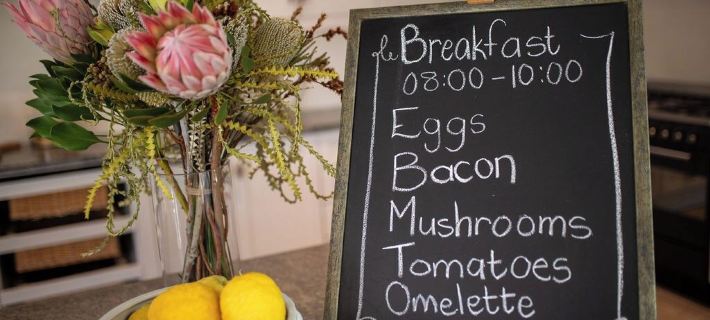 Breakfast
08:00-10:00
Eggs
Bacon
Mushrooms
Tomatoes
Omelette